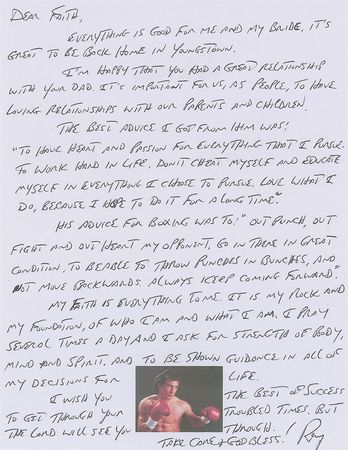 DEAR FAITH,
EVERYTHING IS GOOD FOR ME AND MY BRIDE, IT'S
GREAT TO BE BACK HOME IN YOUNGSTOWN.
I'M HAPPY THAT YOU HAD A GREAT RELATIONSHIP
WITH YOUR DAD. IT'S IMPORTANT FOR US, AS PEOPLE, TO HAVE
LOVING RELATIONSHIPS WITH OUR PARENTS AND CHILDREN.
THE BEST ADVICE I GOT FROM HIM WAS:
"TO HAVE HEART AND PASSION FOR EVERYTHING THAT I PURSUE.
TO WORK HARD IN LIFE, DON'T CHEAT MYSELF AND EDUCATE
MYSELF IN EVERYTHING I CHOOSE TO PURSUE, LOVE WHAT I
DO, BECAUSE I HOPE TO DO IT FOR A LONG TIME."
HIS ADVICE FOR BOXING WAS TO: "OUT PUNCH, OUT
FIGHT AND OUT HEART MY OPPONENT, GO IN THERE IN GREAT
CONDITION, TO BE ABLE TO THROW PUNCHES IN BUNCHES, AND
NOT MOVE BACKWARDS. ALWAYS KEEP COMING FORWARD."
MY FAITH IS EVERYTHING TO ME. IT IS MY ROCK AND
MY FOUNDATION, OF WHO I AM AND WHAT I AM. I PRAY
SEVERAL TIMES A DAY AND I ASK FOR STRENGTH OF BODY,
MIND AND SPIRIT. AND TO BE SHOWN GUIDANCE IN ALL OF
MY DECISIONS FOR LIFE.
I WISH YOU THE BEST OF SUCCESS
TO GET THROUGH YOUR TROUBLED TIMES. BUT
THE LORD WILL SEE YOU THROUGH.
TAKE CARE & GOD BLESS! Ray